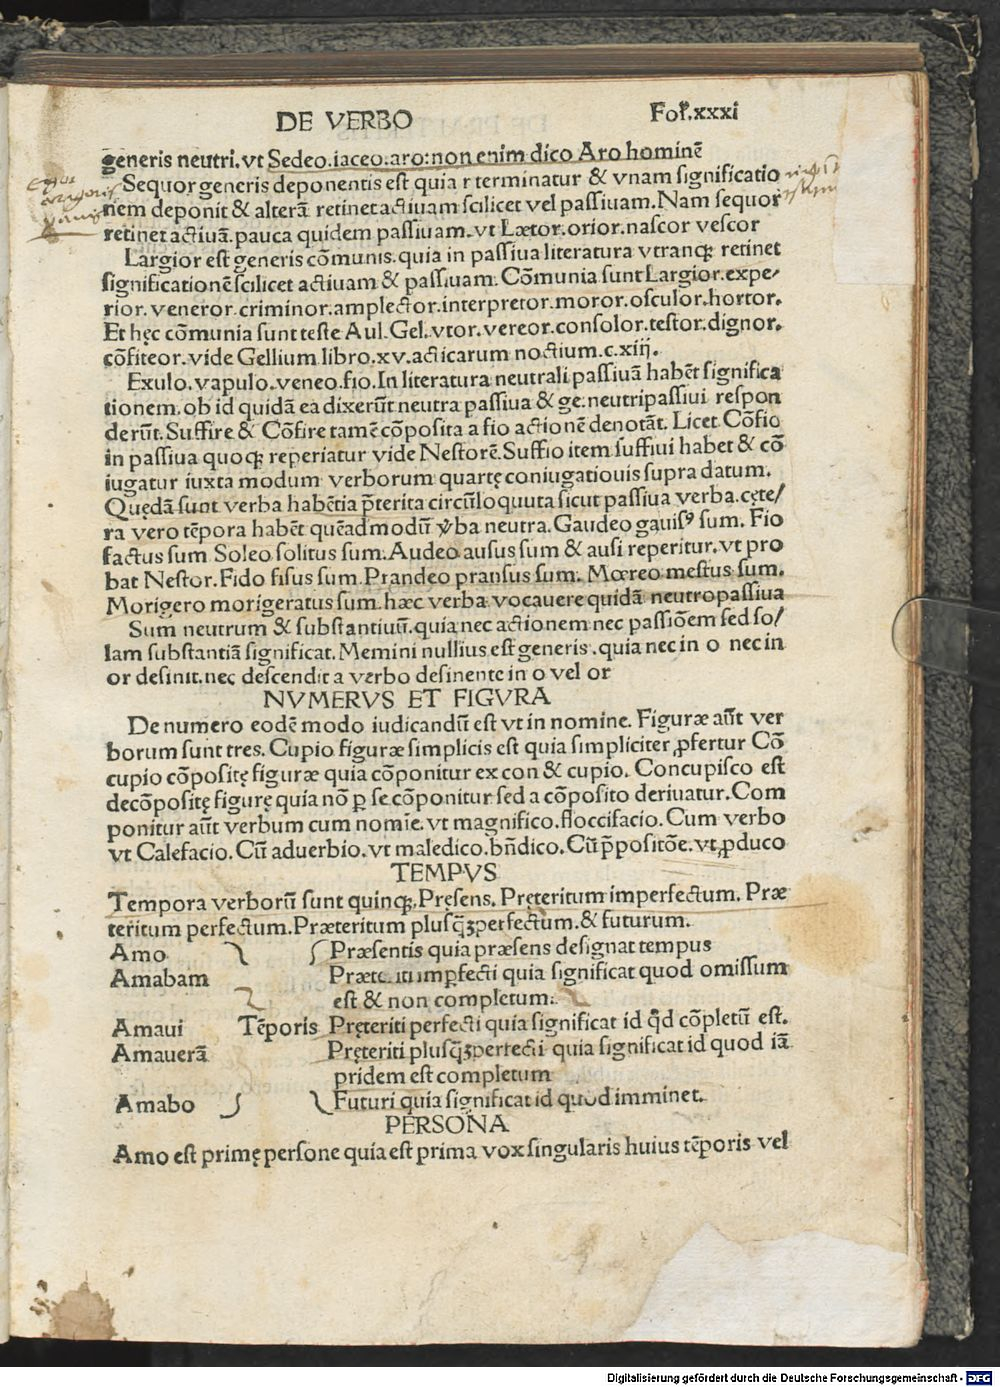 DE VERBO Fol.xxxi
generis neutri. vt Sedeo. iaceo. aro: non enim dico Aro hominē
Sequor generis deponentis est quia r terminatur & vnam significatio
nem deponit & alterā retinet actiuam scilicet vel passiuam. Nam sequor
retinet actiuā. pauca quidem passiuam. vt Lætor. orior. nascor vescor
Largior est generis cōmunis. quia in passiua literatura vtranqȝ retinet
significationē scilicet actiuam & passiuam. Cōmunia sunt Largior. expe/
rior. veneror. criminor. amplector. interpretor. moror. osculor. hortor.
Et hęc cōmunia sunt teste Aul. Gel. vtor. vereor. consolor. testor. dignor.
cōfiteor. vide Gellium libro. xv. acticarum noctium. c. xiij.
Exulo. vapulo. veneo. fio. In literatura neutrali passiuā habēt significa
tionem. ob id quidā ea dixerūt neutra passiua & ge. neutripassiui respon
derūt. Suffire & Cōfire tamē cōposita a fio actionē denotāt. Licet Cōfio
in passiua quoqȝ reperiatur vide Nestorē. Suffio item suffiui habet & cō
iugatur iuxta modum verborum quartę coniugatiouis supra datum.
Quędā sunt verba habētia p̄terita circūloquuta sicut passiua verba. cęte/
ra vero tēpora habēt quēadmodū v̓ba neutra. Gaudeo gauisꝰ sum. Fio
factus sum Soleo solitus sum. Audeo ausus sum & ausi reperitur. vt pro
bat Nestor. Fido fisus sum. Prandeo pransus sum. Mœreo mestus sum.
Morigero morigeratus sum. hæc verba vocauere quidā neutropassiua
Sum neutrum & substantiuū. quia nec actionem nec passiōem sed so/
lam substantiā significat. Memini nullius est generis. quia nec in o nec in
or desinit. nec descendit a verbo desinente in o vel or
NVMERVS ET FIGVRA
De numero eodē modo iudicandū est vt in nomine. Figuræ aūt ver
borum sunt tres. Cupio figuræ simplicis est quia simpliciter ꝓfertur Cō
cupio cōpositę figuræ quia cōponitur ex con & cupio. Concupisco est
decōpositę figurę quia nō ꝑ se cōponitur sed a cōposito deriuatur. Com
ponitur aūt verbum cum nomīe. vt magnifico. floccifacio. Cum verbo
vt Calefacio. Cū aduerbio. vt maledico. bn̄dico. Cū p̄positōe. vt ꝓduco
TEMPVS
Tempora verborū sunt quinqȝ. Pręsens. Pręteritum imperfectum. Præ
teritum perfectum. Præteritum plusq̄ȝperfectum. & futurum.
Amo Præsentis quia præsens designat tempus
Amabam Præteriti imꝑfecti quia significat quod omissum
est & non completum.
Amaui Tēporis Pręteriti perfecti quia significat id qd̓ cōpletū est.
Amauerā Pręteriti plusq̄ȝperfecti quia significat id quod iā
pridem est completum
Amabo Futuri quia significat id quod imminet.
PERSONA
Amo est primę persone quia est prima vox singularis huius tēporis vel
Digitalisierung gefördert durch die Deutsche Forschungsgemeinschaft - DFG